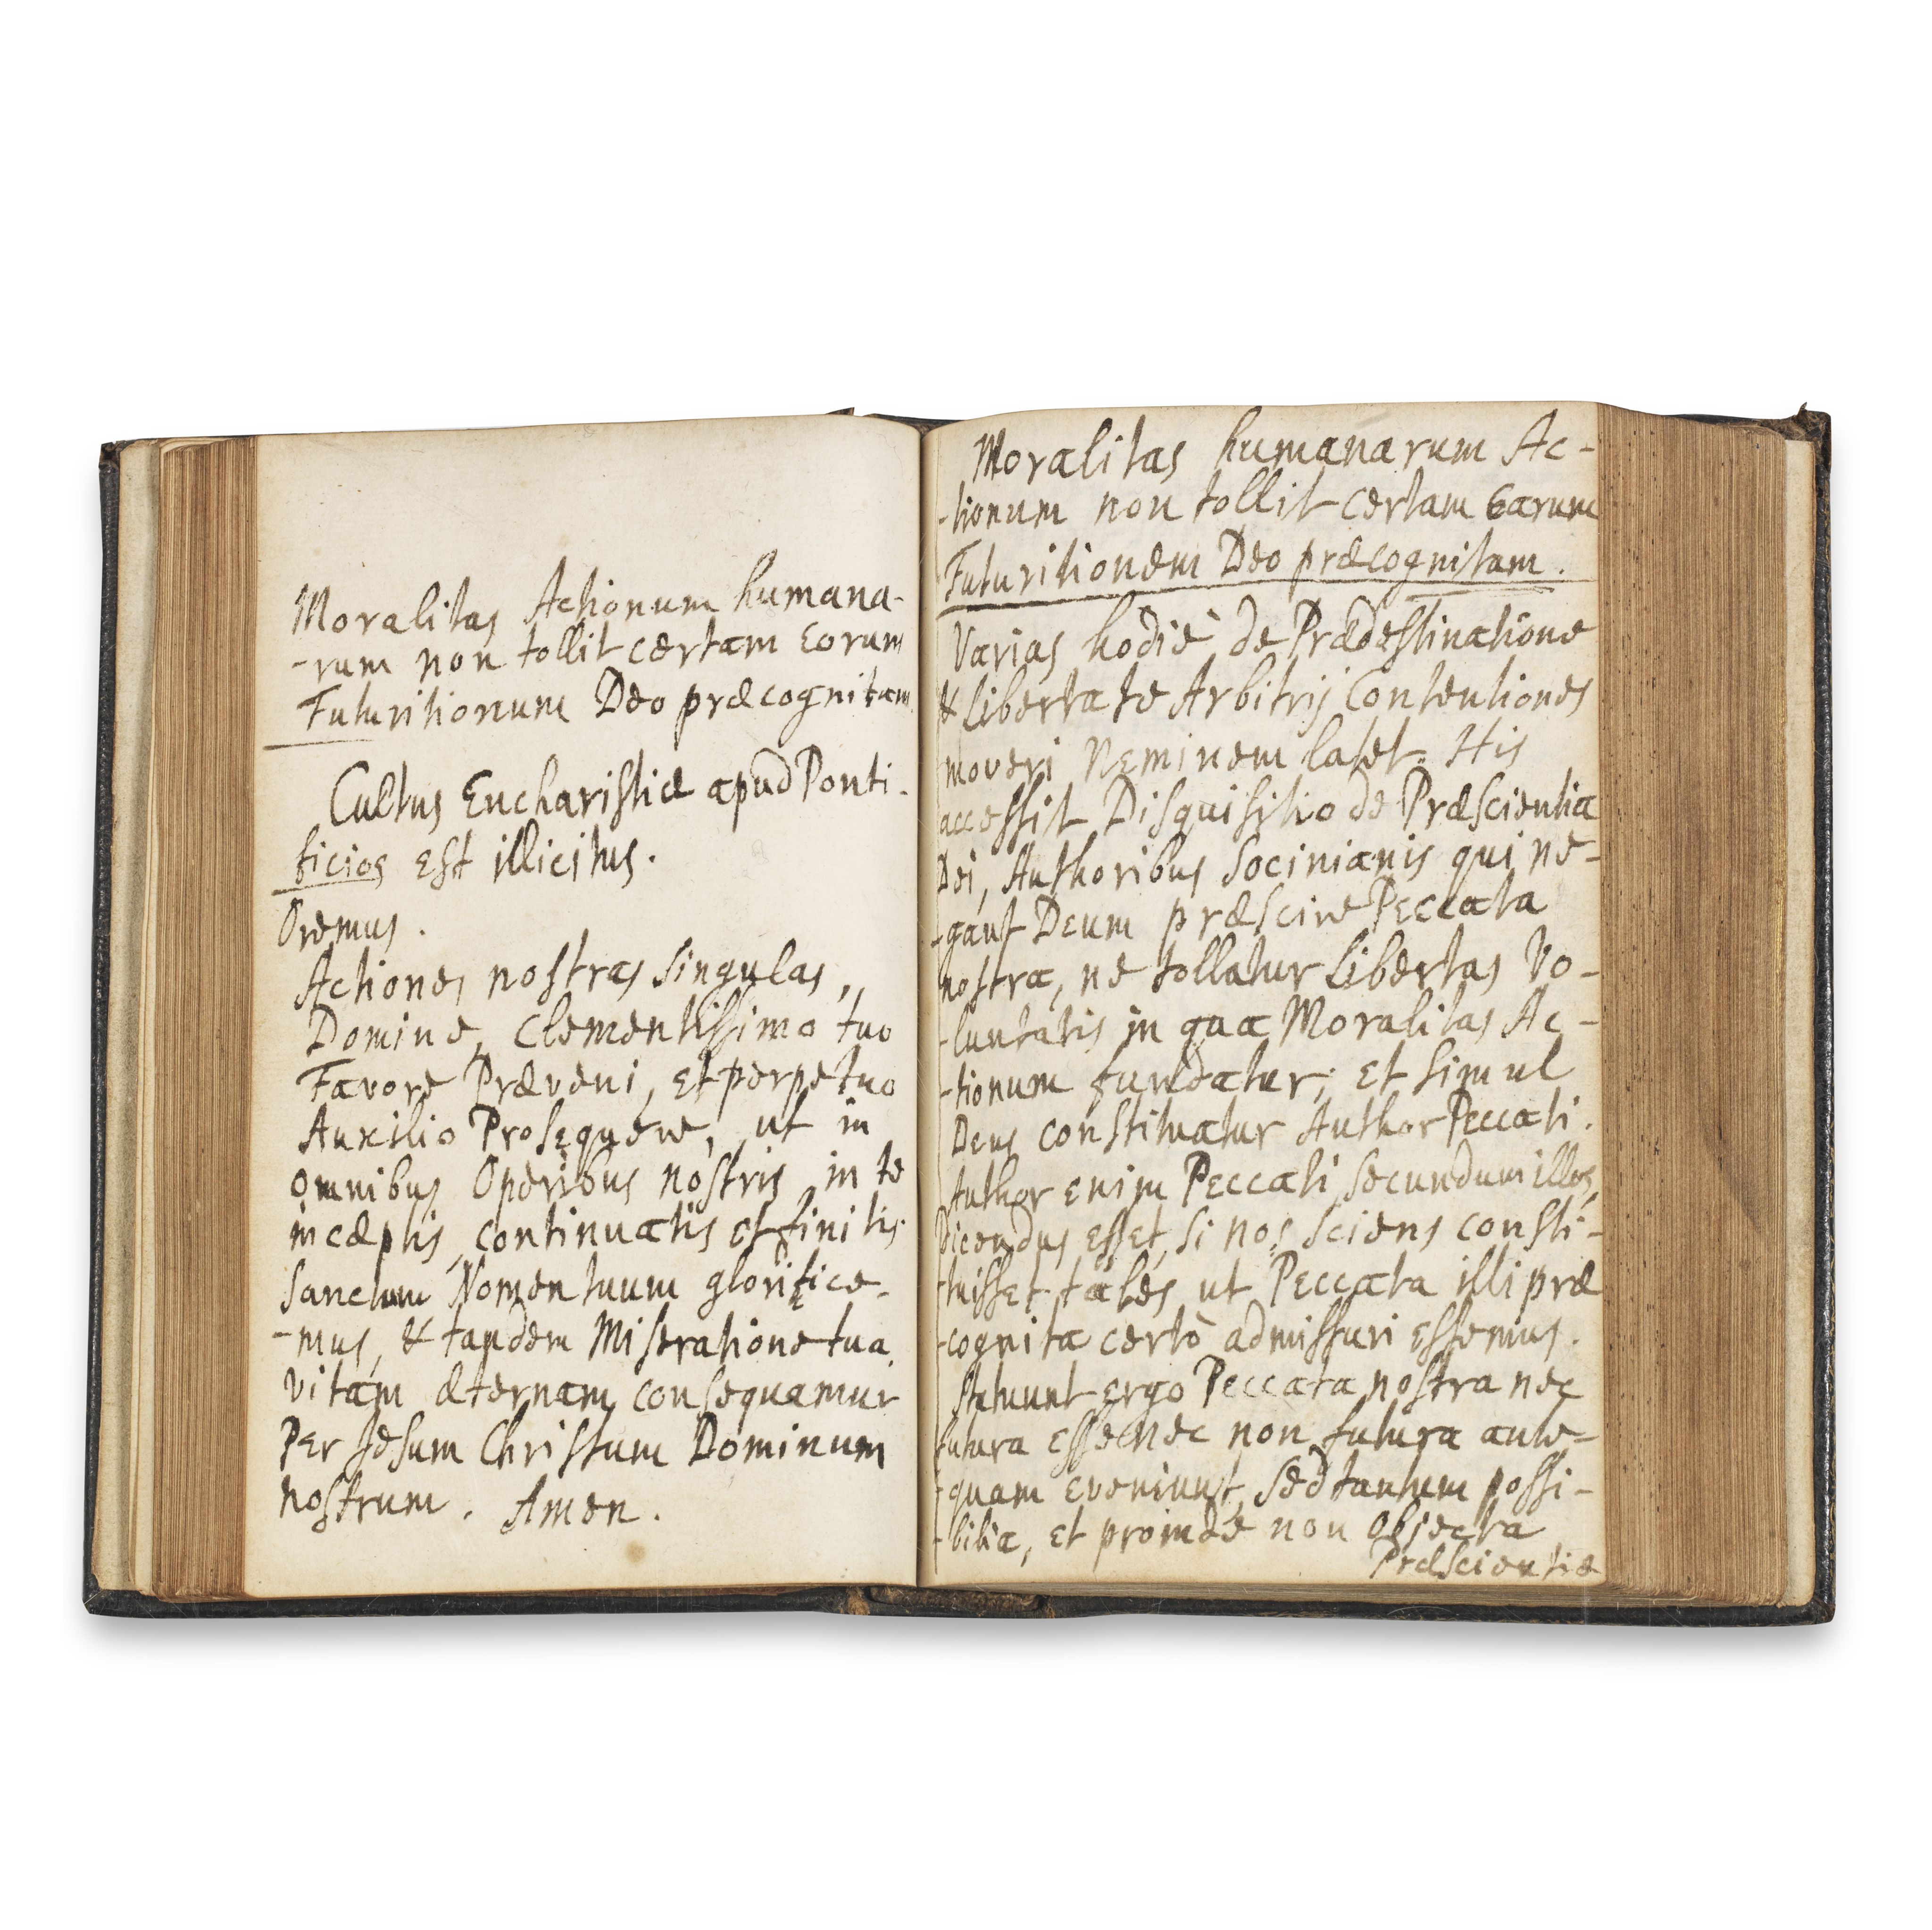 Moralitas Actionum humana-
-rum non tollit certam Eorum
Futuritionum Deo præcognitam
Cultus Eucharistiæ apud Ponti-
ficios Est illicitus.
Oremus.
Actiones nostras singulas,
Domine, Clementissimo tuo
Favore Præveni, et perpetuo
Auxilio Prosequere, ut in
omnibus Operibus nostris in te
incæptis, continuatis et finitis
Sanctum Nomen tuum glorifice-
-mus, & tandem Miseratione tua
Vitam æternam consequamur
Per Jesum Christum Dominum
nostrum. Amen.
Moralitas humanarum Ac-
-tionum non tollit certam Earum
Futuritionem Deo præcognitam.
Varias hodiè de Prædestinatione
& Libertate Arbitrij Contentiones
moveri Neminem latet. His
accessit Disquisitio de Præscientia
Dei, Authoribus Socinianis qui ne-
-gant Deum præscire Peccata
nostra, ne tollatur Libertas Vo-
-luntatis in qua Moralitas Ac-
-tionum fundatur; et simul
Deus constituatur Author Peccati.
Author enim Peccati secundum illos,
Dicendus esset, si nos sciens consti-
-tuisset tales ut Peccata illi præ
-cognita certò admissuri essemus.
Statuunt ergo Peccata nostra nec
futura esse nec non futura ante-
-quam eveniunt, sed tantum possi-
-bilia, et proinde non objecta
Præscientiæ